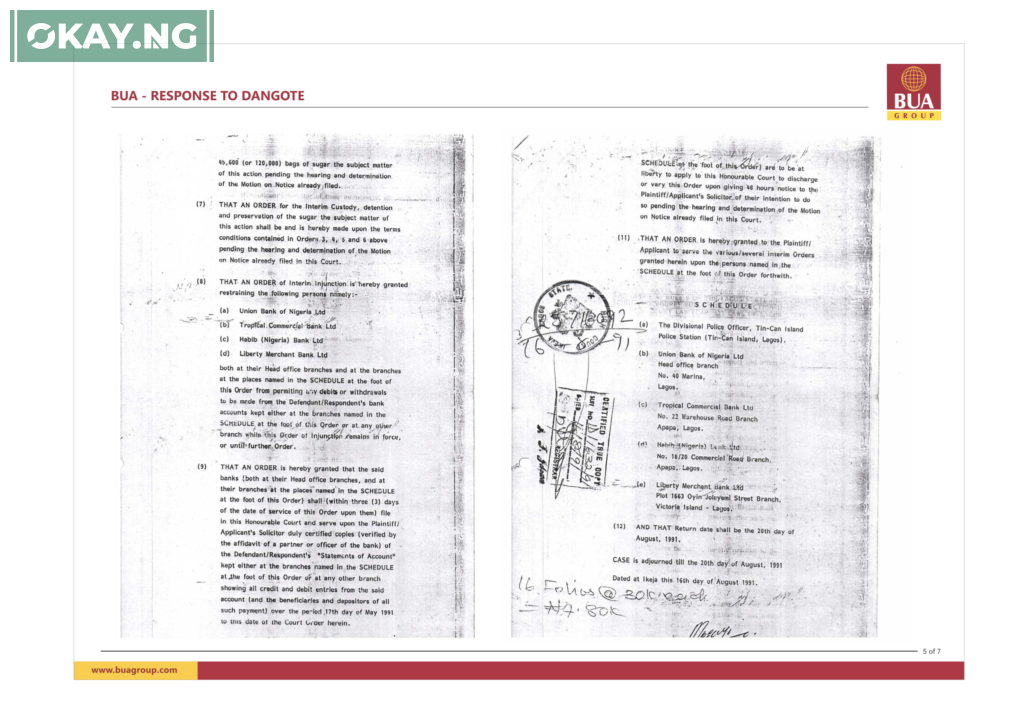 OKAY.NG
BUA - RESPONSE TO DANGOTE
BUA
GROUP
45,600 (or 120,000) bags of sugar the subject matter
of this action pending the hearing and determination
of the Motion on Notice already filed.
(7) THAT AN ORDER for the Interim Custody, detention
and preservation of the sugar the subject matter of
this action shall be and is hereby made upon the terms
conditions contained in Orders 3, 4, 5 and 6 above
pending the hearing and determination of the Motion
on Notice already filed in this Court.
(8) THAT AN ORDER of Interim Injunction is hereby granted
restraining the following persons namely:-
(a) Union Bank of Nigeria Ltd
(b) Tropical Commercial Bank Ltd
(c) Habib (Nigeria) Bank Ltd
(d) Liberty Merchant Bank Ltd
both at their Head office branches and at the branches
at the places named in the SCHEDULE at the foot of
this Order from permiting any debits or withdrawals
to be made from the Defendant/Respondent's bank
accounts kept either at the branches named in the
SCHEDULE at the foot of this Order or at any other
branch while this Order of Injunction remains in force,
or until further Order.
(9) THAT AN ORDER is hereby granted that the said
banks (both at their Head office branches, and at
their branches at the places named in the SCHEDULE
at the foot of this Order) shall (within three (3) days
of the date of service of this Order upon them) file
in this Honourable Court and serve upon the Plaintiff/
Applicant's Solicitor duly certified copies (verified by
the affidavit of a partner or officer of the bank) of
the Defendant/Respondent's "Statements of Account"
kept either at the branches named in the SCHEDULE
at the foot of this Order or at any other branch
showing all credit and debit entries from the said
account (and the beneficiaries and depositors of all
such payment) over the period 17th day of May 1991
to this date of the Court Order herein.
SCHEDULE at the foot of this Order) are to be at
liberty to apply to this Honourable Court to discharge
or vary this Order upon giving 48 hours notice to the
Plaintiff/Applicant's Solicitor of their intention to do
so pending the hearing and determination of the Motion
on Notice already filed in this Court.
(11) THAT AN ORDER is hereby granted to the Plaintiff/
Applicant to serve the various/several interim Orders
granted herein upon the persons named in the
SCHEDULE at the foot of this Order forthwith.
SCHEDULE
(a) The Divisional Police Officer, Tin-Can Island
Police Station (Tin-Can Island, Lagos).
(b) Union Bank of Nigeria Ltd
Head office branch
No. 40 Marina,
Lagos.
(c) Tropical Commercial Bank Ltd
No. 22 Warehouse Road Branch
Apapa, Lagos.
(d) Habib (Nigeria) Ltd
No. 18/20 Commercial Road Branch,
Apapa, Lagos.
(e) Liberty Merchant Bank Ltd
Plot 1663 Oyin Jolayemi Street Branch,
Victoria Island - Lagos.
CERTIFIED TRUE COPY
(12) AND THAT Return date shall be the 20th day of
August, 1991.
CASE is adjourned till the 20th day of August, 1991
Dated at Ikeja this 16th day of August 1991.
16 Folios @ 30K each
= ₦4.80K
5 of 7
www.buagroup.com